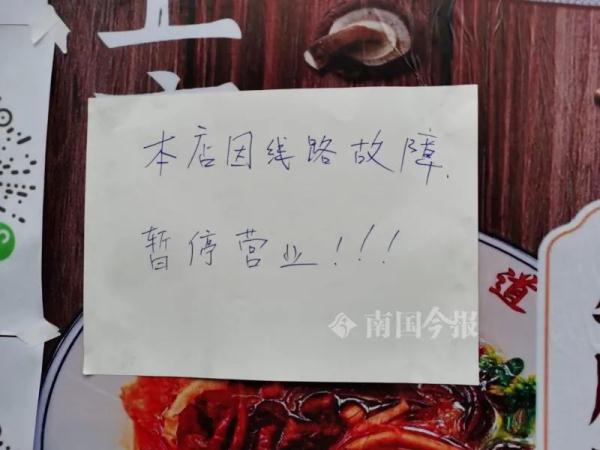 本店因线路故障.
暂停营业!!!
道
南国今报